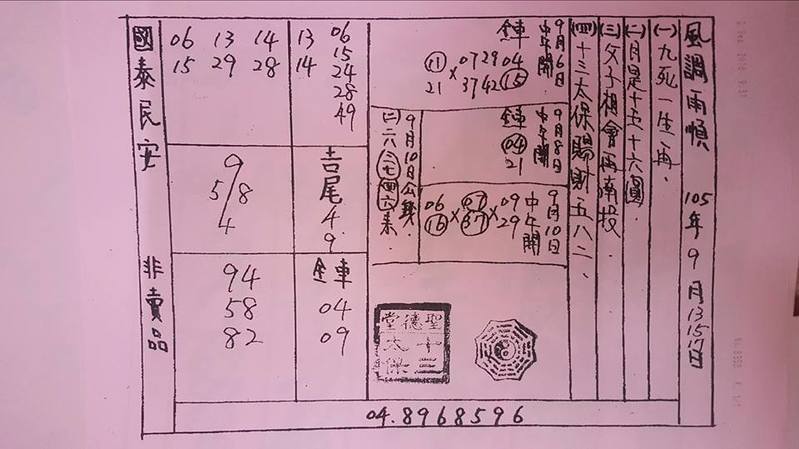 風調雨順 105年9月13.15.17日
(一)九死一生再.
(二)月是十五十六圓.
(三)父子相會再南投.
(四)十三太保賜財五八二、
9月6日
中午開
鍾
04 15
0729 × 3742
11 21
9月8日
中午開
鍾
04
21
9月10日
中午開
09 × 07 × 06
29 37 16
9月10日公錢
(二)二六(三)七(四)六
聖德堂
十三太保
06 15 24 28 49
13 14
14 28
13 29
06 15
吉尾 4. 9
9
5/8
4
鍾
04
09
94
58
82
國泰民安 非賣品
04.8968596